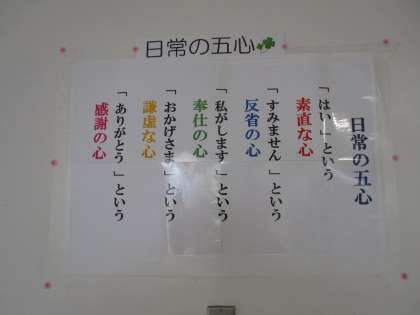 日常の五心
日常の五心
「はい」という
素直な心
「すみません」という
反省の心
「私がします」という
奉仕の心
「おかげさま」という
謙虚な心
「ありがとう」という
感謝の心